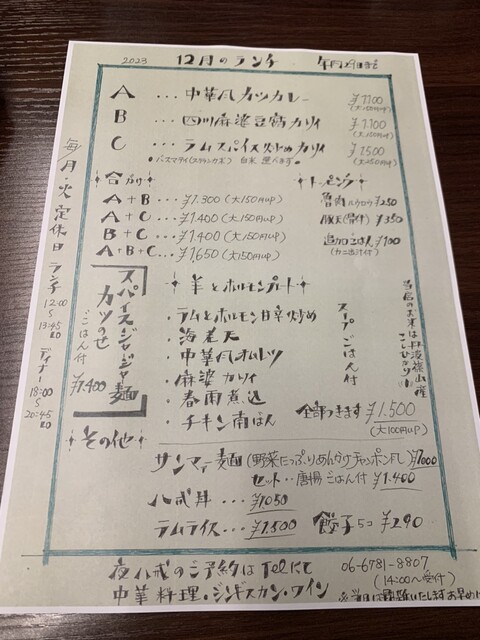 2023 12月のランチ
A ... 中華風カツカレー ¥1.100
(大150円UP)
B ... 四川麻婆豆腐カリィ ¥1.100
(大150円UP)
C ... ラムスパイス炒めカリィ ¥1.500
(大150円UP)
白米 選べます
合がけ
A+B ... ¥1.300 (大150円UP)
A+C ... ¥1.400 (大150円UP)
B+C ... ¥1.400 (大150円UP)
A+B+C... ¥1.650 (大150円UP)
トッピング
魯肉 ¥250
豚天 ¥350
追加ごはん ¥100
毎/月火定休日
ランチ 12:00 S 13:45 LO
ディナー 18:00 S 20:45 LO
スパイスジャージャー麺
カツのせ
ごはん付
¥1.400
羊とホルモンプレート
・ラムとホルモン甘辛炒め
・海老天
・中華風オムレツ
・麻婆カリィ
・春雨煮込
・チキン南ばん
スープごはん付
全部つきます ¥1.500
(大100円UP)
当店のお米は丹波篠山産
こしひかり
その他
サンマー麺 (野菜たっぷりあんかけチャンポン風) ¥1000
セット... 唐揚 ごはん付 ¥1.400
八戒丼 ... ¥1.050
ラムライス... ¥1.500 餃子5コ ¥290
夜八戒のご予約はTelにて 06-6781-8807
(14:00~受付)
中華料理・ジンギスカン・ワイン